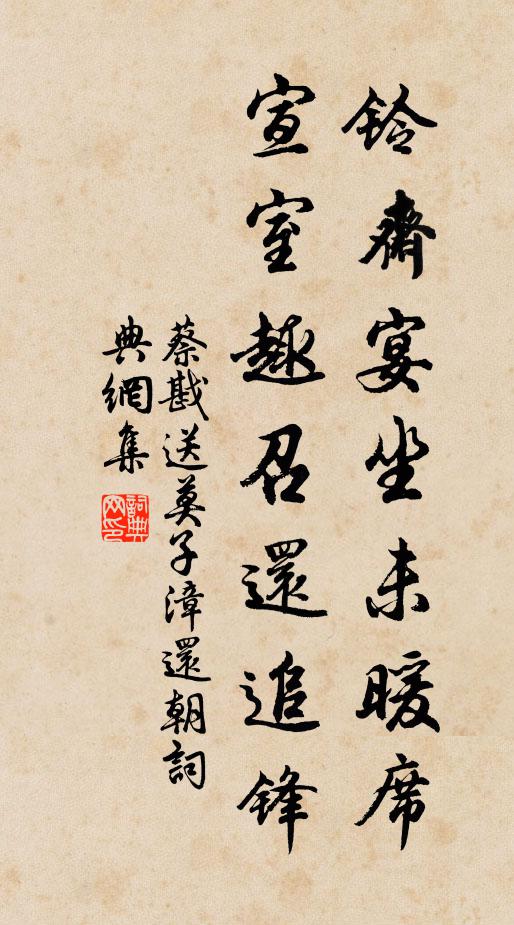 鈴齋宴坐未暖席
宣室趣召還追鋒
蔡戡送莫子漳還朝詞
典網集
詞典網印